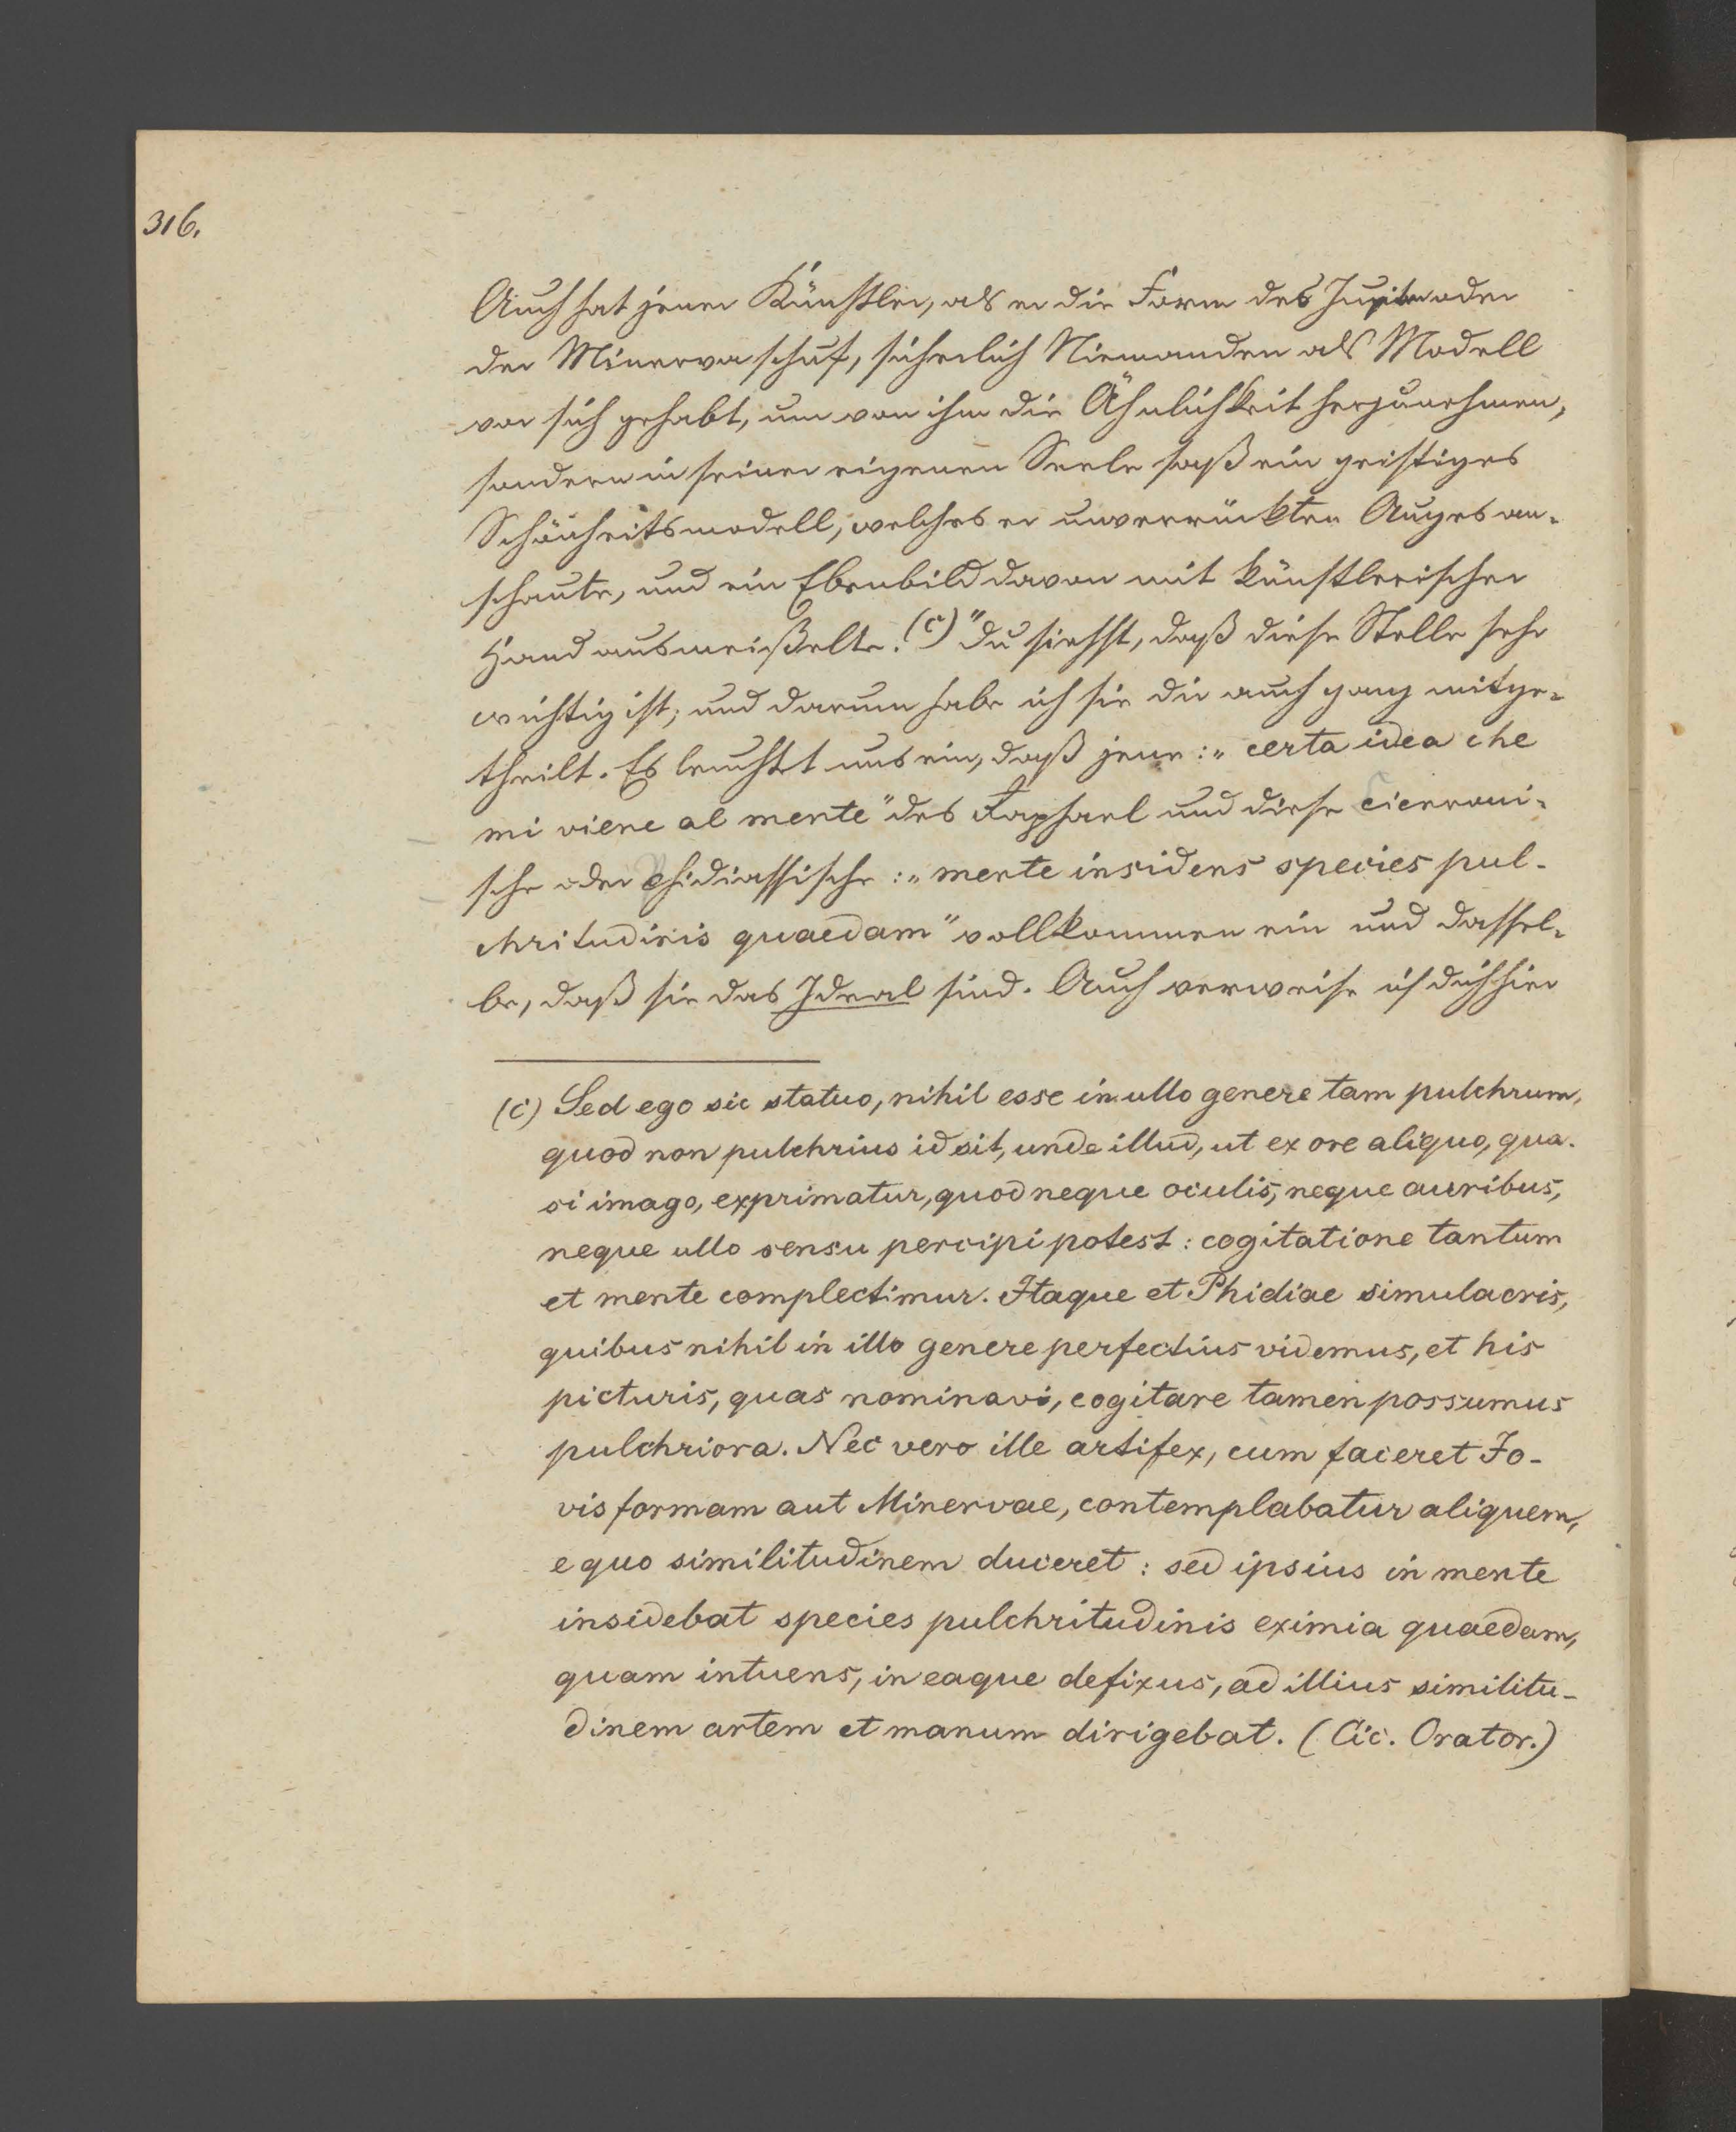 316.
Auch hat jener Künstler, als er die Form des Jupiter oder
der Minerva schuf, sicherlich Niemanden als Modell
vor sich gehabt, um von ihm die Ähnlichkeit herzunehmen,
sondern in seiner eigenen Seele saß ein geistiges
Schönheitsmodell, welches er unverrückten Auges an-
schaute, und ein Ebenbild davon mit künstlerischer
Hand ausmeißelte.(c)" Du siehst, daß diese Stelle sehr
wichtig ist; und darum habe ich sie dir auch ganz mitge-
theilt. Es leuchtet uns ein, daß jene: „certa idea che
mi viene al mente" des Raphael und diese Ciceroni-
sche oder Phidiassische: „mente insidens species pul-
chritudinis quaedam" vollkommen ein und dassel-
be, daß sie das Ideal sind. Auch verweise ich dich hier
(c) Sed ego sic statuo, nihil esse in ullo genere tam pulchrum,
quod non pulchrius id sit, unde illud, ut ex ore aliquo, qua-
si imago, exprimatur, quod neque oculis, neque auribus,
neque ullo sensu percipi potest: cogitatione tantum
et mente complectimur. Itaque et Phidiae simulacris,
quibus nihil in illo genere perfectius videmus, et his
picturis, quas nominavi, cogitare tamen possumus
pulchriora. Nec vero ille artifex, cum faceret Jo-
vis formam aut Minervae, contemplabatur aliquem,
e quo similitudinem duceret: sed ipsius in mente
insidebat species pulchritudinis eximia quaedam,
quam intuens, in eaque defixus, ad illius similitu-
dinem artem et manum dirigebat. (Cic. Orator.)